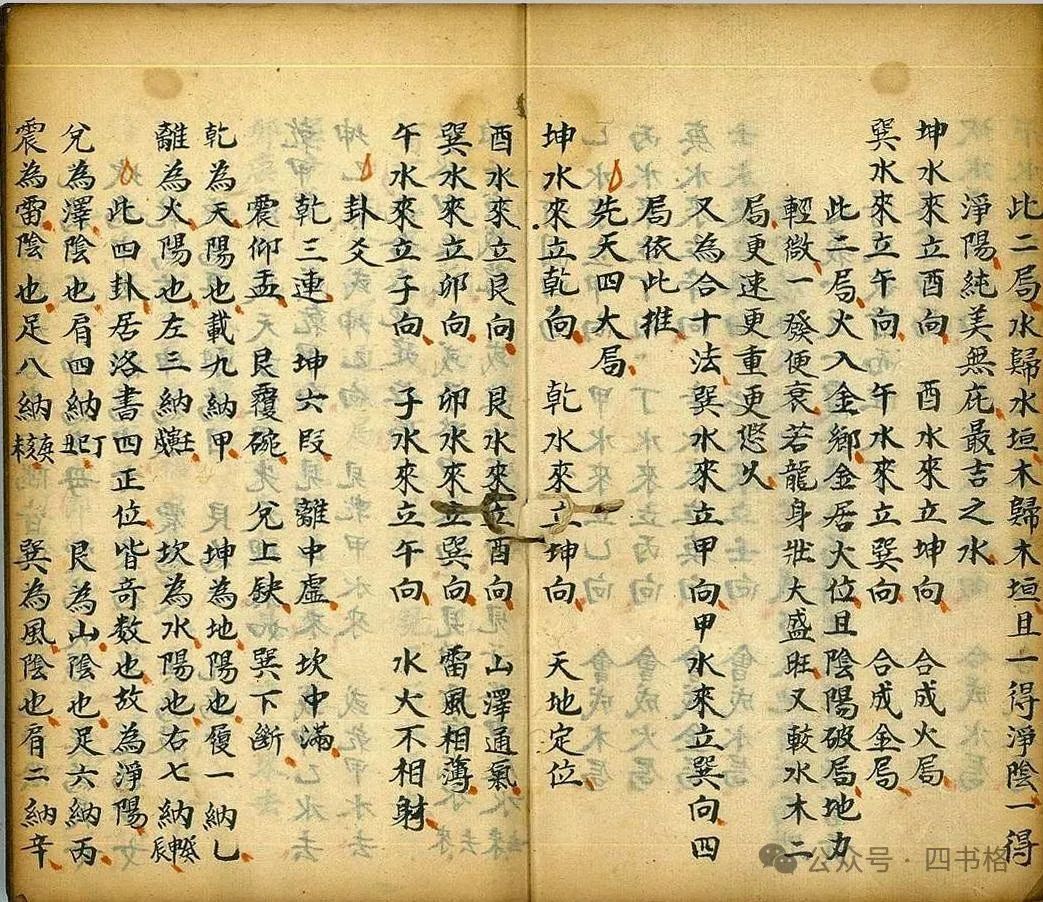 此二局水歸水垣木歸木垣且一得淨陰一得
淨陽純美無庇最吉之水
坤水來立酉向 酉水來立坤向 合成火局
巽水來立午向 午水來立巽向 合成金局
此二局火入金鄉金居火位且陰陽破局地力
輕微一發便衰若龍身壯大盛旺又較水木二
局更速更重更悠久
又為合十法巽水來立甲向甲水來立巽向四
局依此推
先天四大局
坤水來立乾向 乾水來立坤向 天地定位
酉水來立艮向 艮水來立酉向 山澤通氣
巽水來立卯向 卯水來立巽向 雷風相薄
午水來立子向 子水來立午向 水火不相射
卦爻
乾三連 坤六叚 離中虛 坎中滿
震仰盂 艮覆碗 兌上缺 巽下斷
乾為天陽也載九納甲 坤為地陽也履一納乙
離為火陽也左三納壬寅戌 坎為水陽也右七納癸申辰
此四卦居洛書四正位皆奇數也故為淨陽
兌為澤陰也肩四納丁巳丑 艮為山陰也足六納丙
震為雷陰也足八納庚亥未 巽為風陰也肩二納辛
公众号·四书格